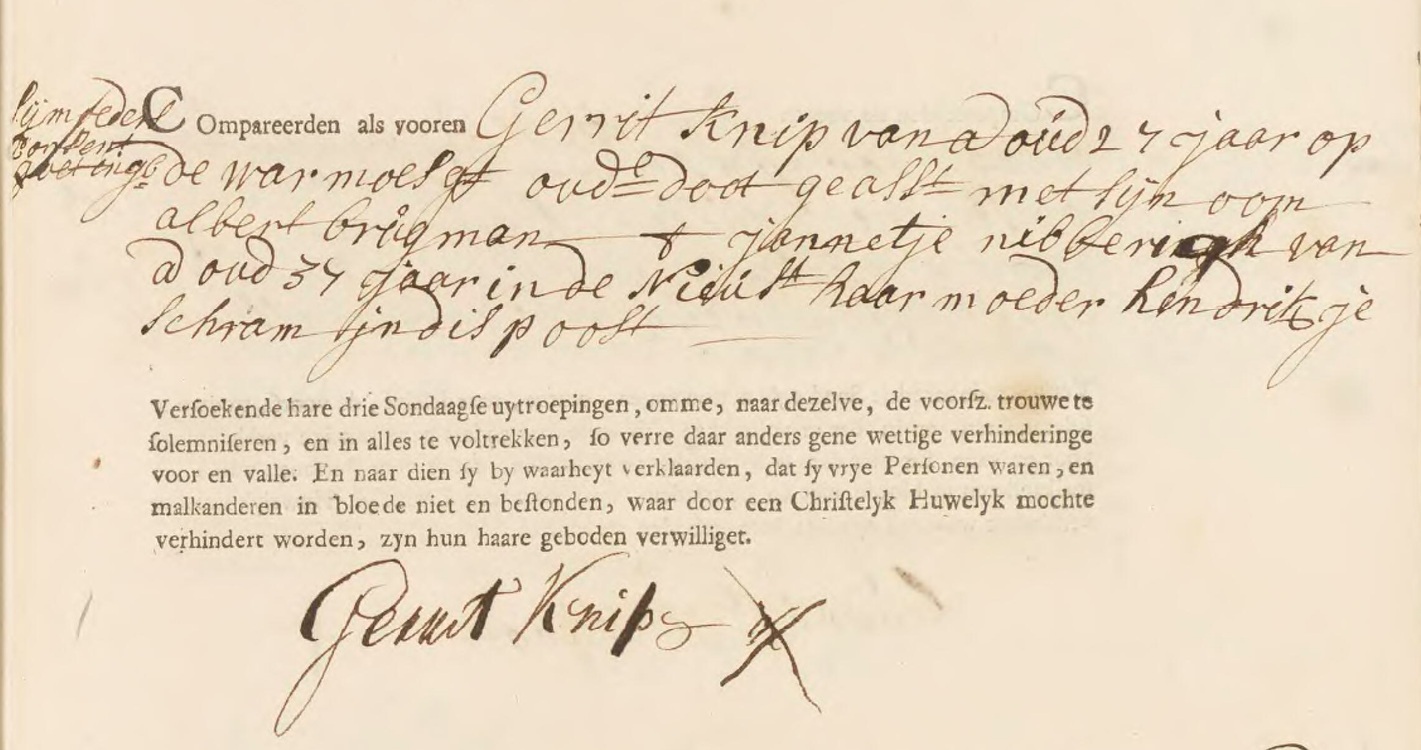 sijn
consent
Compareerden als vooren Gerrit Knip van A oud 27 jaar op
de warmoes gt oud.e doot geasst met sijn oom
albert brugman & jannetje nibberingh van
A oud 37 jaar in de Nieust haar moeder hendrikje
schram indispoost
Verſoekende hare drie Sondaagſe uytroepingen, omme, naar dezelve, de voorſz. trouwe te
ſolemniſeren, en in alles te voltrekken, ſo verre daar anders gene wettige verhinderinge
voor en valle. En naar dien ſy by waarheyt verklaarden, dat ſy vrye Perſonen waren, en
malkanderen in bloede niet en beſtonden, waar door een Chriſtelyk Huwelyk mochte
verhindert worden, zyn hun haare geboden verwilliget.
Gerrit Knip X